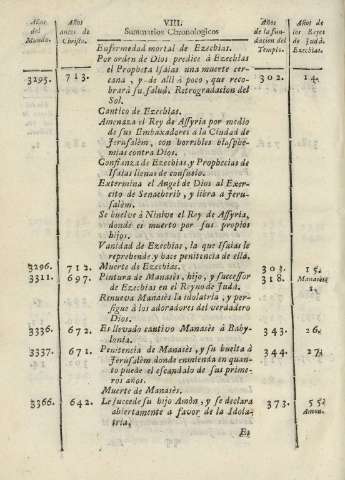 VIII.
Años del Mundo.
Años antes de Christo.
Summarios Chronologicos
Años de la fundacion del Templo.
Años de los Reyes de Judá. Ezechias.
Enfermedad mortal de Ezechias.
Por orden de Dios predice à Ezechias
3295. 713. el Propheta Isaías una muerte cer- 302. 14.
cana, y de allì à poco, que reco-
brará su salud. Retrogradacion del
Sol.
Cantico de Ezechias.
Amenaza el Rey de Assyria por medio
de sus Embaxadores à la Ciudad de
Jerusalèm, con horribles blasphe-
mias contra Dios.
Confianza de Ezechias, y Prophecias de
Isaías llenas de consuelo.
Extermina el Angel de Dios al Exer-
cito de Senacherib, y libra à Jeru-
salèm.
Se buelve à Ninive el Rey de Assyria,
donde es muerto por sus proprios
hijos.
Vanidad de Ezechias, la que Isaías le
reprehende y hace penitencia de ella.
3296. 712. Muerte de Ezechias. 303. 15.
3311. 697. Pintura de Manasès, hijo, y successor 318. Manasès
de Ezechias en el Reyno de Judá. 1.
Renueva Manasès la idolatría, y per-
sigue à los adoradores del verdadero
Dios.
3336. 672. Es llevado cautivo Manasès à Baby- 343. 26.
lonia.
3337. 671. Penitencia de Manasès, y su buelta à 344. 27.
Jerusalèm donde enmienda en quan-
to puede el escandalo de sus prime-
ros años.
Muerte de Manasès.
3366. 642. Le succede su hijo Amòn, y se declara 373. 55.
abiertamente à favor de la Idola- Amon.
tría,
Es